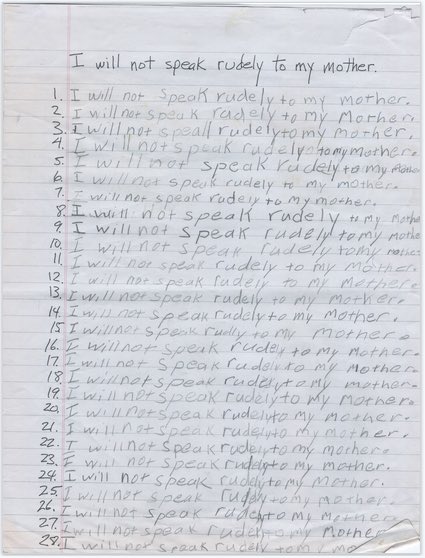 I will not speak rudely to my mother.
1. I will not speak rudely to my mother.
2. I will not speak rudely to my mother.
3. I will not speall rudely to my mother.
4. I will not speak rudely to my mother.
5. I will not speak rudely to my mother
6. I will not speak rudely to my mother.
7. I will not speak rudely to my mother.
8. I will not speak rudely to my mothe
9. I will not speak rudely to my mothe
10. I will not speak rudely to my mother
11. I will not speak rudely to my mother.
12. I will not speak rudely to my mother.
13. I will not speak rudely to my mother.
14. I will not speak rudely to my mother.
15 I will not speak rudly to my mother.
16. I will not speak rudely to my mother.
17. I will not speak rudely to my mother.
18. I will not speak rudely to my mother.
19. I will not speak rudely to my mother.
20. I will not speak rudely to my mother.
21. I will not speak rudely to my mother.
22. I will not speak rudely to my mother.
23. I will not speak rudely to my mother.
24. I will not speak rudely to my mother.
25. I will not speak rudely to my mother.
26. I will not speak rudely to my mother.
27. I will not speak rudely to my mother.
28. I will not speak rudely to my mo